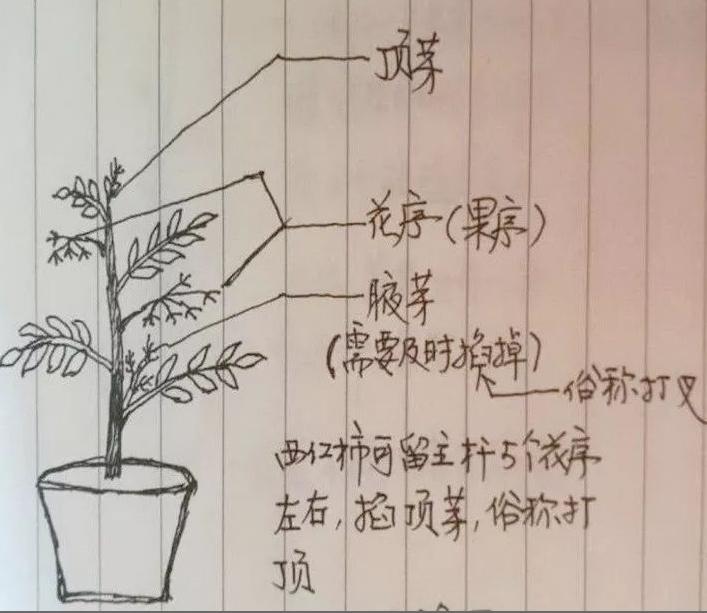 顶芽
花序(果序)
腋芽
(需要及时掐掉)
俗称打叉
西红柿可留主杆5个花序
左右,掐顶芽,俗称打
顶